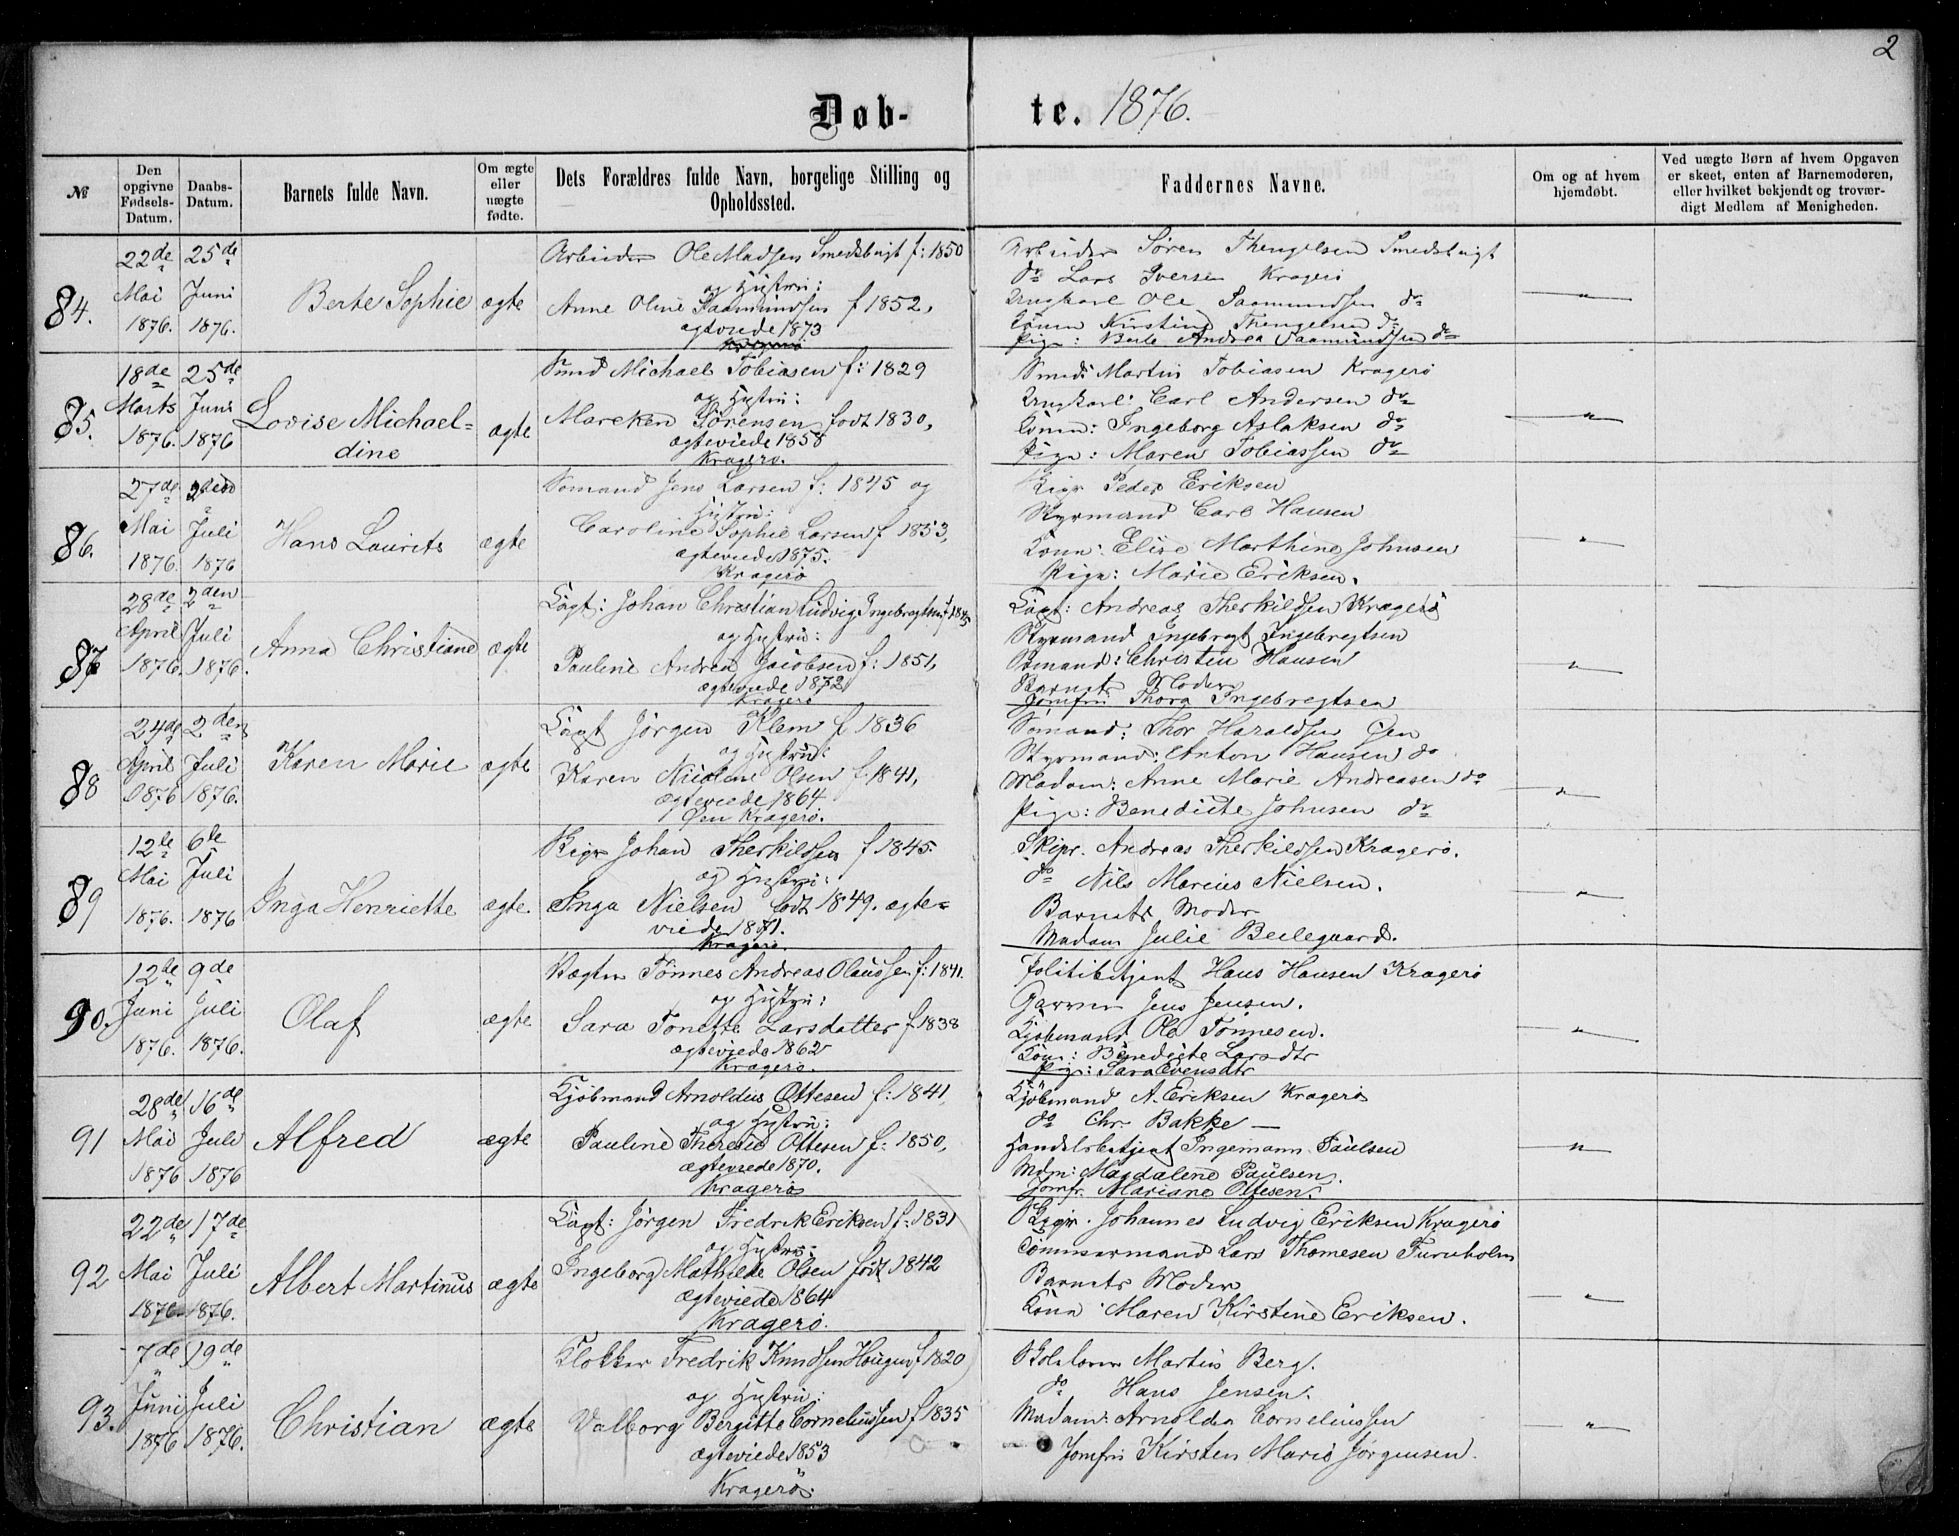 2
Døb- te. 1876.
№
Den opgivne Fødsels-Datum.
Daabs-Datum.
Barnets fulde Navn.
Om ægte eller uægte fødte.
Dets Forældres fulde Navn, borgelige Stilling og Opholdssted.
Faddernes Navne.
Om og af hvem hjemdøbt.
Ved uægte Børn af hvem Opgaven er skeet, enten af Barnemoderen, eller hvilket bekjendt og troværdigt Medlem af Menigheden.
84.
22de Mai 1876.
25de Juni 1876.
Berte Sophie
ægte
Arbeider Ole Madsen Smedsbugt f: 1850
og Hustru:
Anne Oline Saamundsen f 1852,
ægteviede 1873
Kragerø
Arbeider Søren Thengelsen Smedsbugt
do Lars Iversen Kragerø
Ungkarl Ole Saamundsen do
Konen Kirstine Thengelsen do
Pige: Berte Andrea Saamundsen do
"
85.
18de Marts 1876.
25de Juni 1876
Lovise Michael=
dine
ægte
Smed Michael Tobiasen f: 1829
og Hustru:
Mareken Sørensen født 1830,
ægteviede 1858
Kragerø.
Smed: Martin Tobiasen Kragerø
Ungkarl: Carl Andersen do
Konen: Ingeborg Aslaksen do
Pige: Maren Tobiassen do
"
86.
27de Mai 1876.
2den Juli 1876
Hans Laurits
ægte
Sømand Jens Larsen f: 1845 og
Hustru:
Caroline Sophie Larsen f 1853,
ægteviede 1875.
Kragerø
Peder Eriksen
Styrmand Carl Hansen
Kona: Elise Marthine Johnsen
Pige: Marie Eriksen.
"
87
28de April 1876.
2den Juli 1876.
Anna Christiane
ægte
Capt: Johan Christian Ludvig Ingebregtsen f 1845
og Hustru:
Pauline Andrea Jacobsen f: 1851,
ægteviede 1872
Kragerø
Capt: Andreas Therkildsen Kragerø
Styrmand Ingebregt Ingebregtsen
Sømand: Christen Hansen
Barnets Moder
Jomfru Thora Ingebregtsen
"
88
24de April 1876
2den Juli 1876.
Karen Marie
ægte
Capt Jørgen Klem f 1836
og Hustru:
Karen Nicoline Olsen f. 1841,
ægteviede 1864
Øen Kragerø.
Sømand: Thor Haraldsen Øen
Styrmand: Anton Hansen do
Madam: Anne Marie Andreasen do
Pige: Benedicte Johnsen do
"
89
12te Mai 1876.
6te Juli 1876
Inga Henriette
ægte.
Johan Therkildsen f 1845.
og Hustru:
Inga Nielsen født 1849. ægte=
viede 1871.
Kragerø.
Skipr. Andreas Therkildsen Kragerø.
do Nils Marius Nielsen.
Barnets Moder
Madam Julie Beilegaard.
"
90.
12te Juni 1876.
9de Juli 1876.
Olaf
ægte
Vægter Tønnes Andreas Olaussen f: 1841.
og Hustru:
Sara Tonette Larsdatter f 1838
ægteviede 1862
Kragerø.
Politibetjent Hans Hansen Kragerø
Garver Jens Jensen.
Kjøbmand Ole Tønnesen.
Kona: Benedicte Larsdtr
Pige: Sara Evensdtr
"
91
28de Mai 1876
16de Juli 1876
Alfred
ægte
Kjøbmand Arnoldus Ottesen f: 1841,
og Hustru:
Pauline Therese Ottesen f: 1850,
ægteviede 1870.
Kragerø
Kjøbmand A. Eriksen Kragerø
do Chr. Bakke —
Handelsbetjent Ingemann Paulsen
Mdm: Magdalene Paulsen.
Jomfr. Mariane Ottesen.
"
92
22de Mai 1876
17de Juli 1876.
Albert Martinus
ægte
Capt: Jørgen Fredrik Eriksen f: 1831
og Hustru:
Ingeborg Mathilde Olsen født 1842
ægteviede 1864
Kragerø.
Johannes Ludvig Eriksen Kragerø
Tømmermand Lars Thomesen Furuholm
Barnets Moder
Kona Maren Kirstine Eriksen.
"
93.
7de Juni 1876
19de Juli 1876.
Christian
ægte
Klokker Fredrik Knudsen Haugen f 1820
og Hustru:
Valborg Bergitte Corneliussen f 1835
ægteviede 1853
Kragerø.
Skolelærer Martin Berg.
do Hans Jensen.
Madam: Arnolda Corneliussen
Jomfru Kirsten Marie Jørgensen.
"